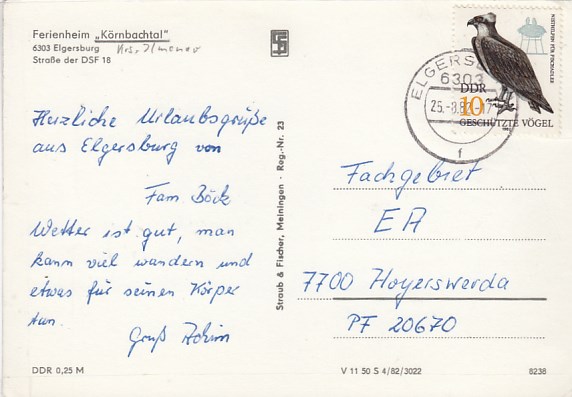 Ferienheim „Körnbachtal"
6303 Elgersburg Krs. Ilmenau
Straße der DSF 18
Herzliche Urlaubsgrüße
aus Elgersburg von
Fam Böck
Wetter ist gut, man
kann viel wandern und
etwas für seinen Körper
tun.
Gruß Achim
DDR 0,25 M
Straub & Fischer, Meiningen · Reg.-Nr. 23
ELGERSBURG
6303
25.-8.82-17
f
DDR
10
GESCHÜTZTE VÖGEL
Fachgebiet
EA
7700 Hoyerswerda
PF 20670
V 11 50 S 4/82/3022
8238